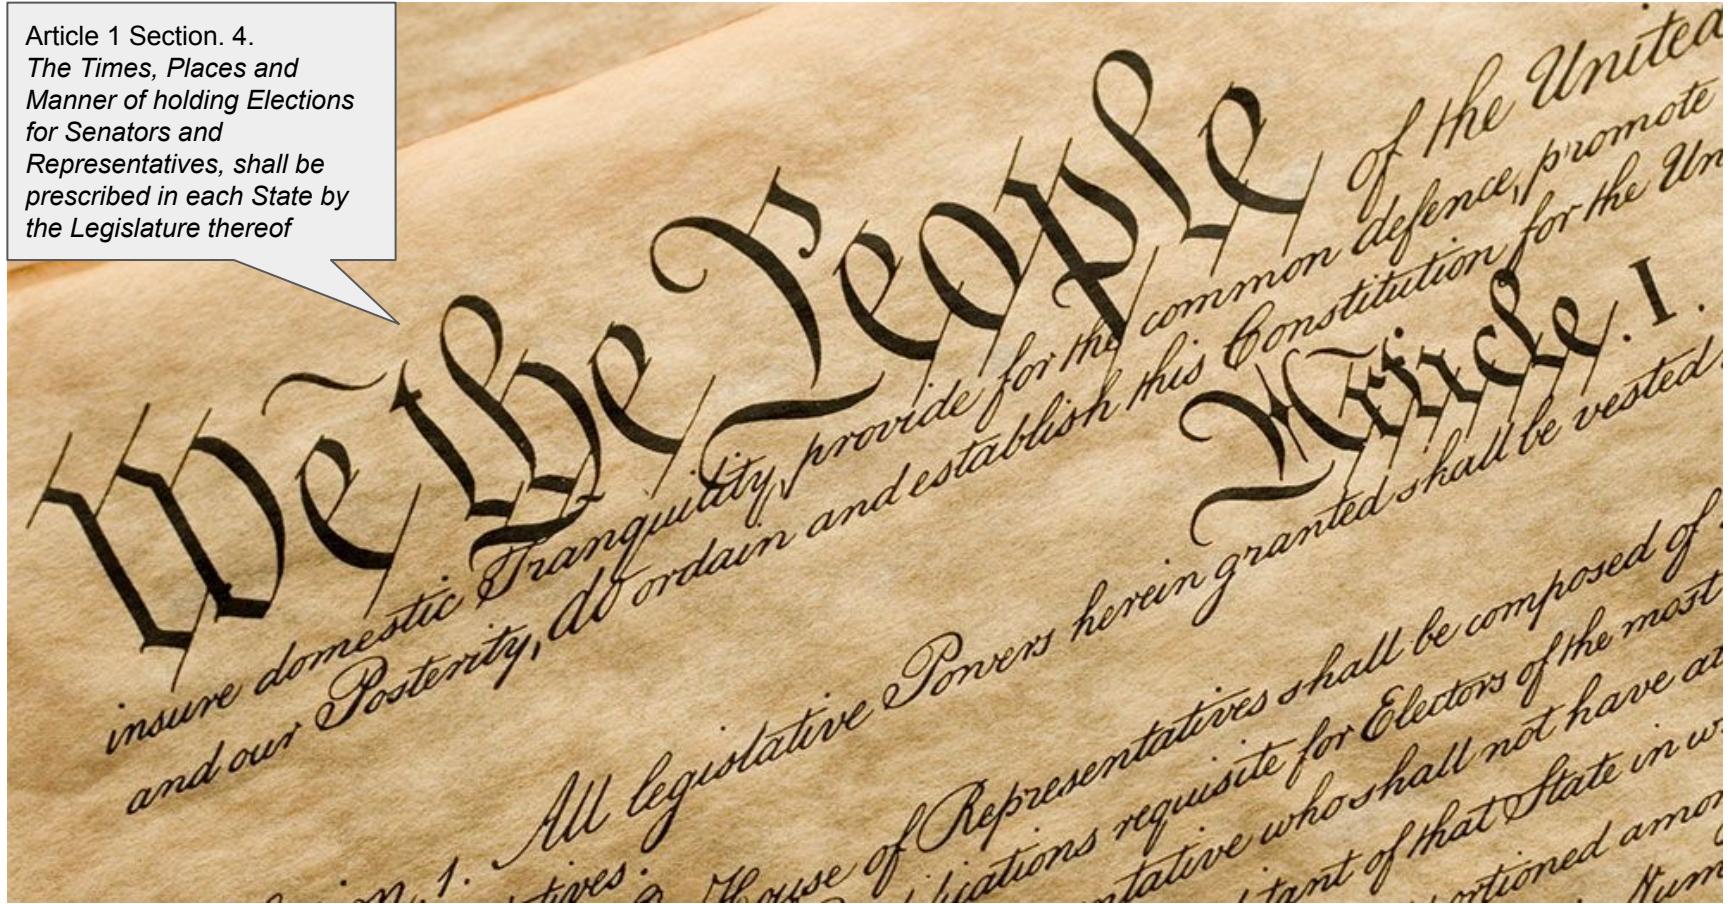 Article 1 Section. 4.
The Times, Places and
Manner of holding Elections
for Senators and
Representatives, shall be
prescribed in each State by
the Legislature thereof
We the People of the United
insure domestic Tranquility, provide for the common defence, promote
and our Posterity, do ordain and establish this Constitution for the Un
Article. I.
1. All legislative Powers herein granted shall be vested
House of Representatives shall be composed of
requisite for Electors of the most
who shall not have
of that State in